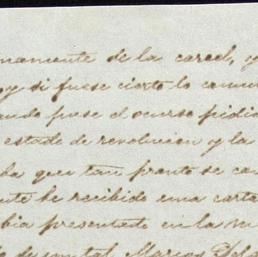 mamente de la carcel, y
oy si fuese cierto lo comun
ando puse el ocurso pidien
estado de revolucion y la
ba que tan pronto se ca
nte he recibido una carta
bia presentado en la m
de un tal Marcos